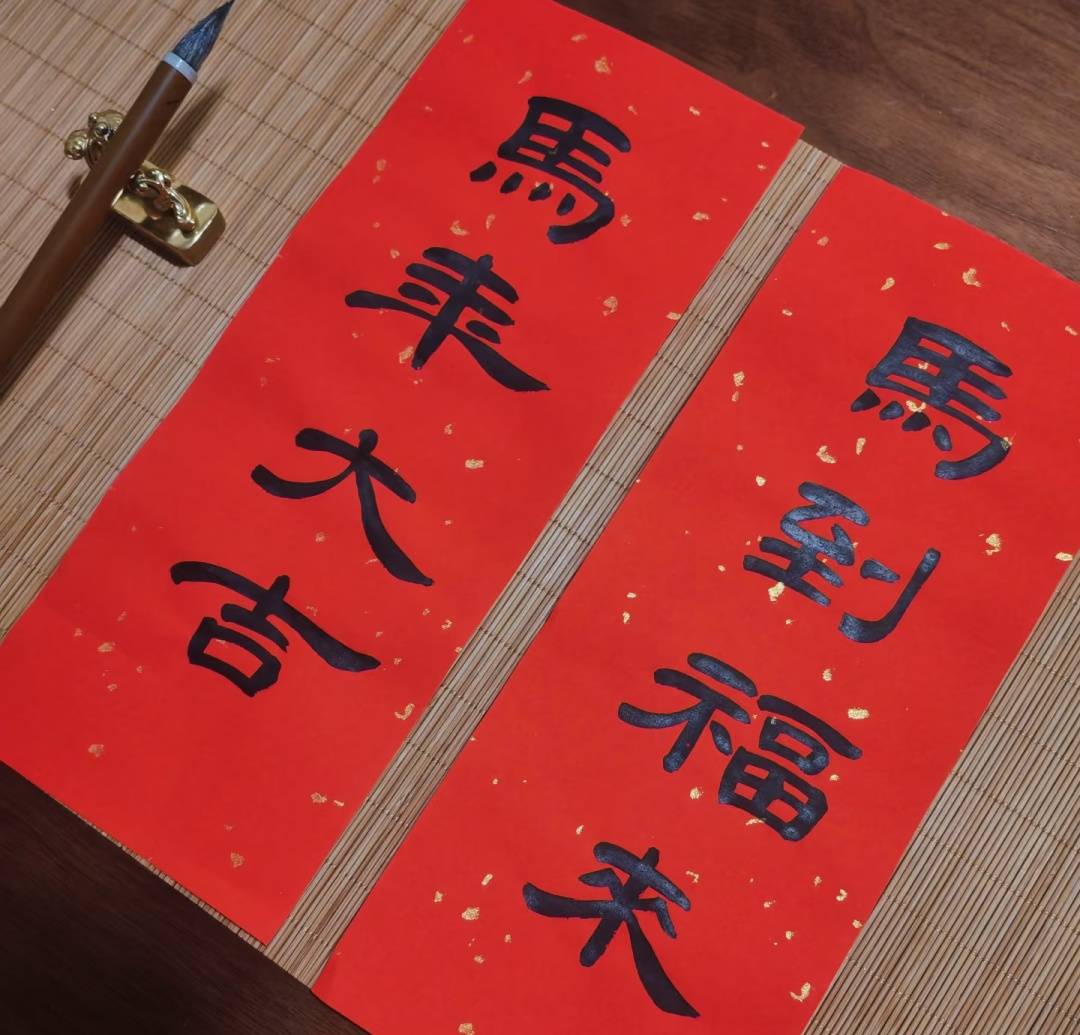 馬到福來
馬年大吉